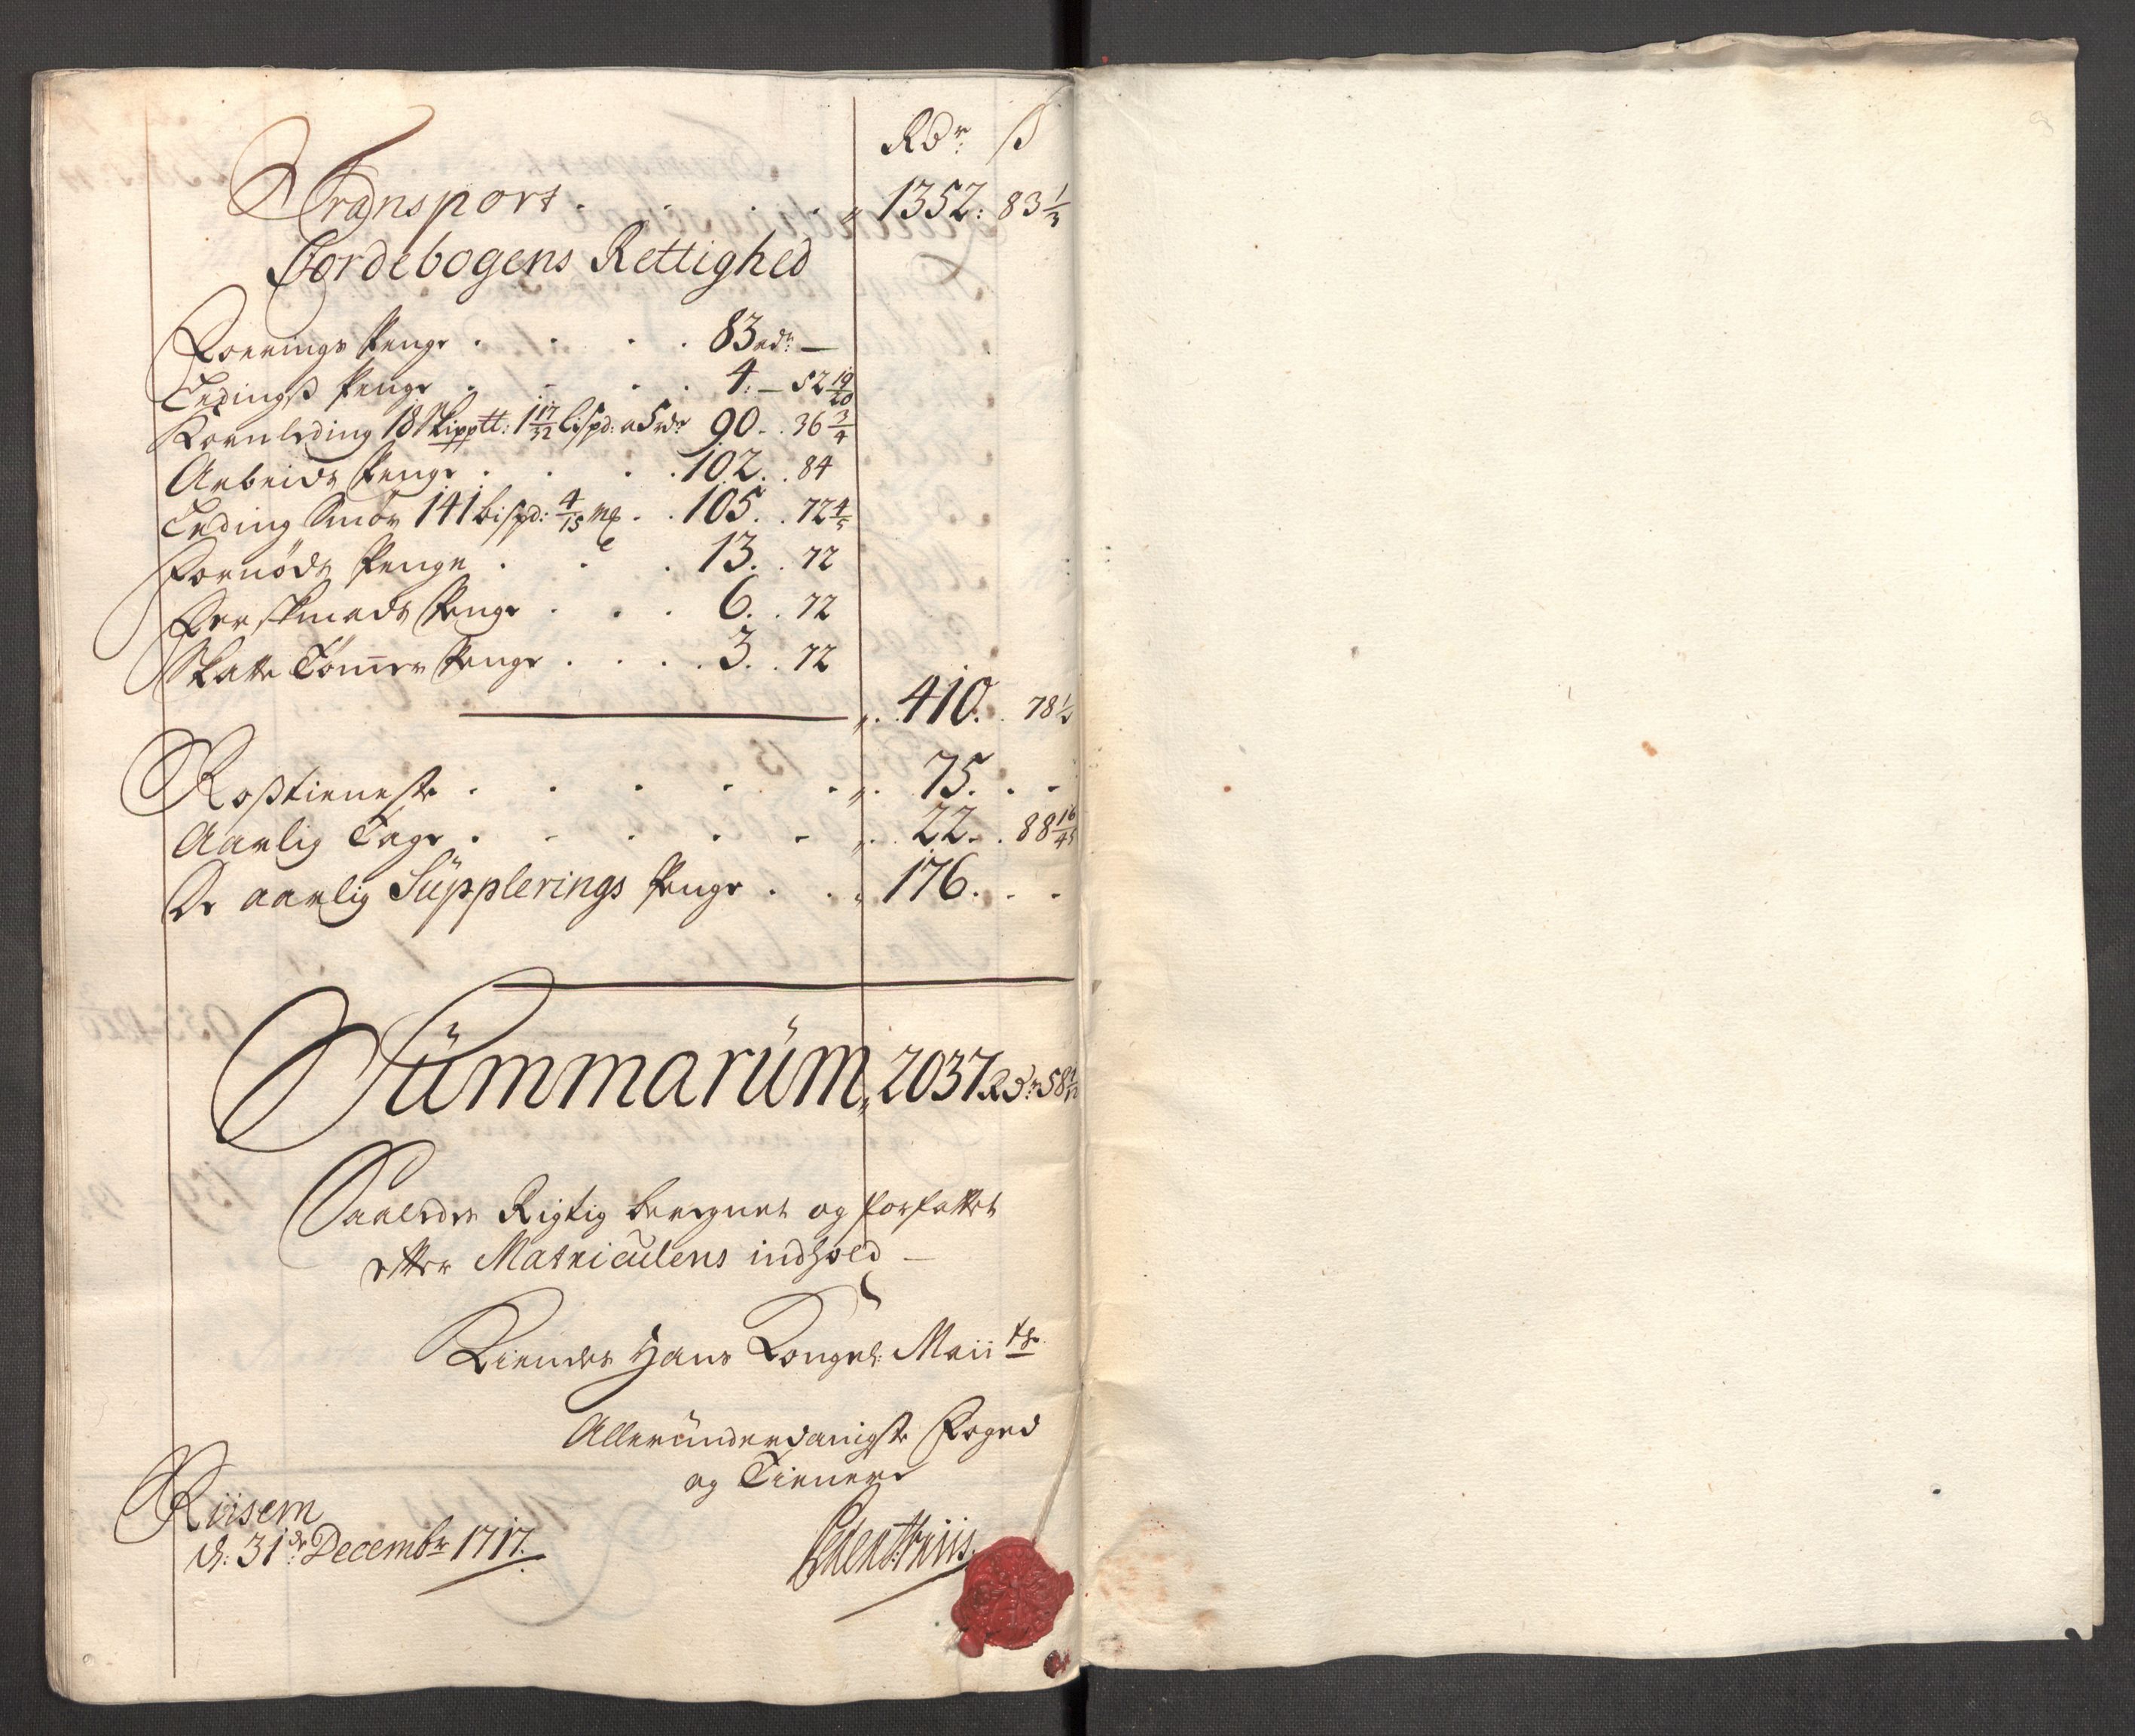 Rdr: ß
Transport . . . . „ 1352: 83 1/3
Jordebogens Rettighed
Foerings Penge . . . . 83 rdr: —
Ledingß Penge . . . . 4: — 52 19/20
Kornleding 18 Skippt: 1 17/32 Lispd: a 5 rdr 90 . . 36 3/4
Arbeids Penge . . . . 102 . . 84
Leding Smør 141 bispd: 4/15 mk . . 105 . . 72 4/5
Fornøds Penge . . . 13 . . 72
Ferskmads Penge . . . 6 . . 72
Skatte Tømer Penge . . . . 3 . . 72
„ . 410 . . 78 1/2
Roßtieneste . . . . . „ . 75 . . -
Aarlig Tage . . . . . „ . 22 . . 88 16/45
De aarlig Süpplerings Penge . . „ 176 . - -
Sümmarüm „ 2037 Rdr: 58
Saaledes Rigtig beregnet og forfattet
efter Matriculens indhold —
Kiendes Hans Kongel: Maiits
Alleründerdanigste Foged
og Tienere
Riisem
d: 31de: Decembr 1717.
Peter Thriis